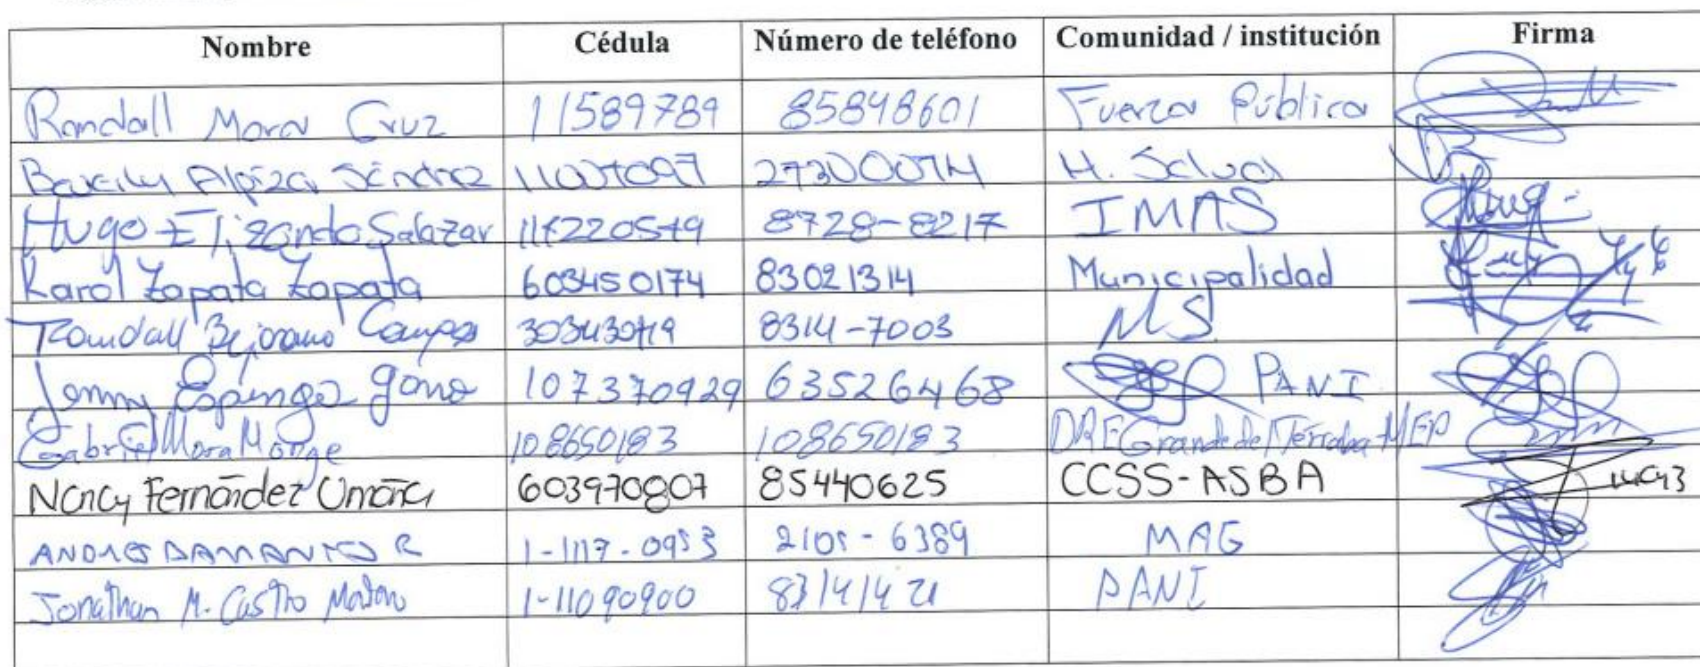 Nombre Cédula Número de teléfono Comunidad / institución Firma
Randall Mora Cruz 11589789 85848601 Fuerza Pública
Sánchez 27300074 M. Salud
Hugo Elizondo Salazar 8728-8217 IMAS
Karol Zapata Zapata 603450174 83021314 Municipalidad
Randall Bejarano Campos 8314-7003 MS
Jenny Espinoza 107370929 63526468 PANI
Gabriel Mora Monge 108650183 108650183 DRE Grande de Térraba-MEP
Nancy Fernández Umaña 603970807 85440625 CCSS-ASBA
ANDRES R 1-1117-0953 2105-6389 MAG
Jonathan M. Castro 1-11090900 83141421 PANI